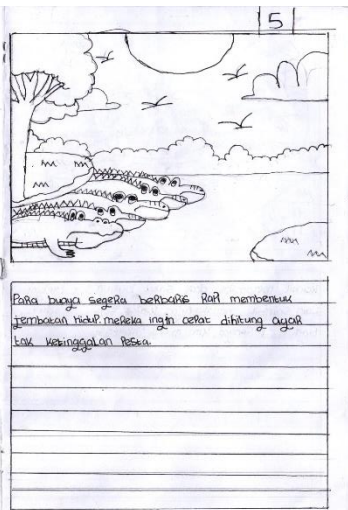 5
Para buaya segera berbaris Rapi membentuk
jembatan hidup. mereka ingin cepat dihitung agar
tak ketinggalan Pesta.